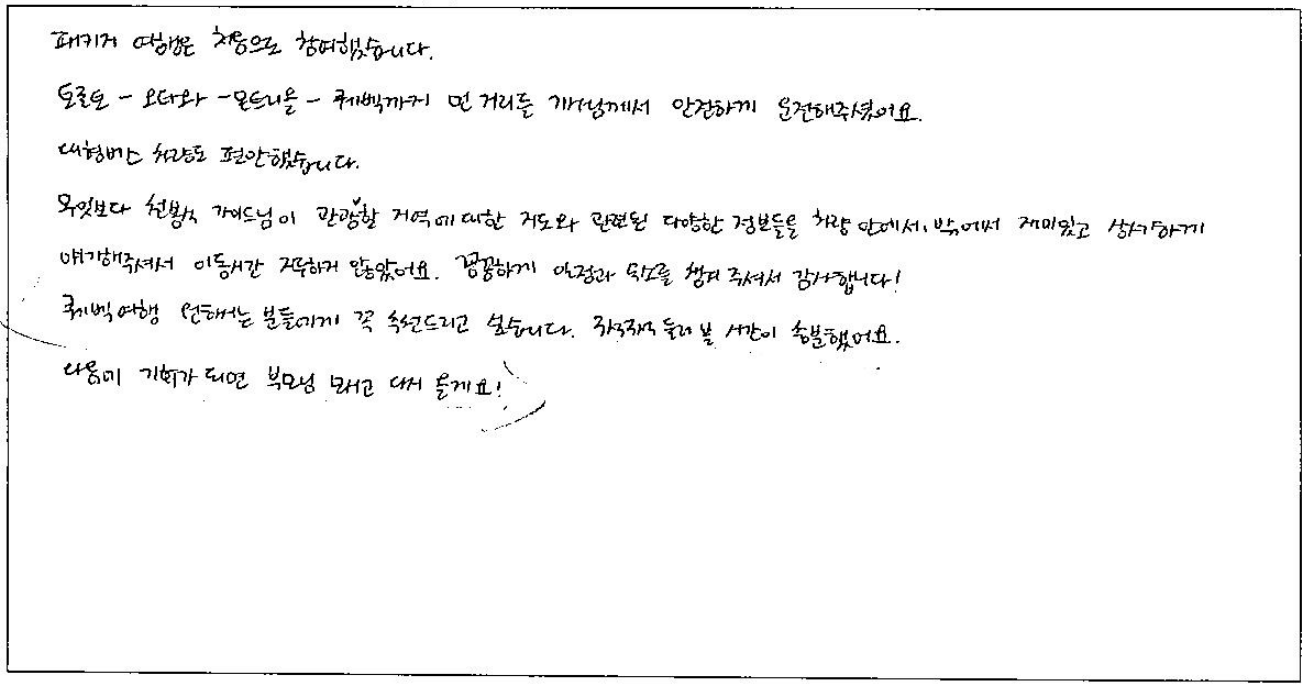 패키지 여행은 처음으로 참여했습니다.
토론토 - 오타와 - 몬트리올 - 퀘벡까지 먼 거리를 기사님께서 안전하게 운전해주셨어요.
대형버스 차량도 편안했습니다.
무엇보다 가이드님이 관광할 지역에 대한 지도와 관련된 다양한 정보들을 차량 안에서, 밖에서 재미있고 상세하게
얘기해주셔서 이동시간 지루하지 않았어요. 꼼꼼하게 일정과 숙소를 챙겨 주셔서 감사합니다!
퀘벡여행 원하시는 분들에게 꼭 추천드리고 싶습니다. 구석구석 둘러 볼 시간이 충분했어요.
다음에 기회가 되면 부모님 모시고 다시 올게요!